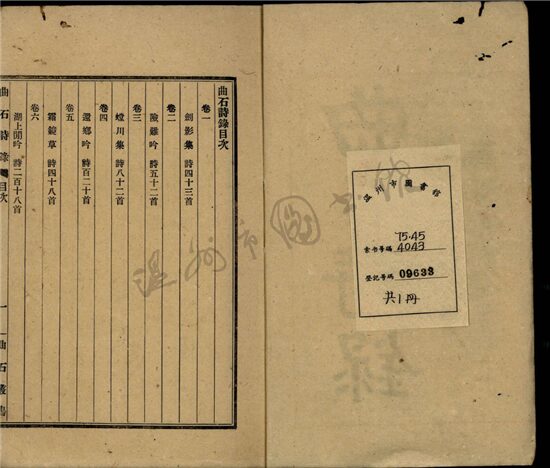 曲石詩錄目次
卷一
劍影集 詩四十三首
卷二
險難吟 詩五十二首
卷三
螳川集 詩八十二首
卷四
還鄉吟 詩百二十首
卷五
霜鏡草 詩四十八首
卷六
湖上閒吟 詩二百十八首
曲石詩錄 目次
一
曲石叢書
温州市圖書館
索書号碼 75.45
4043
登記号碼 09633
共1冊
温州市圖